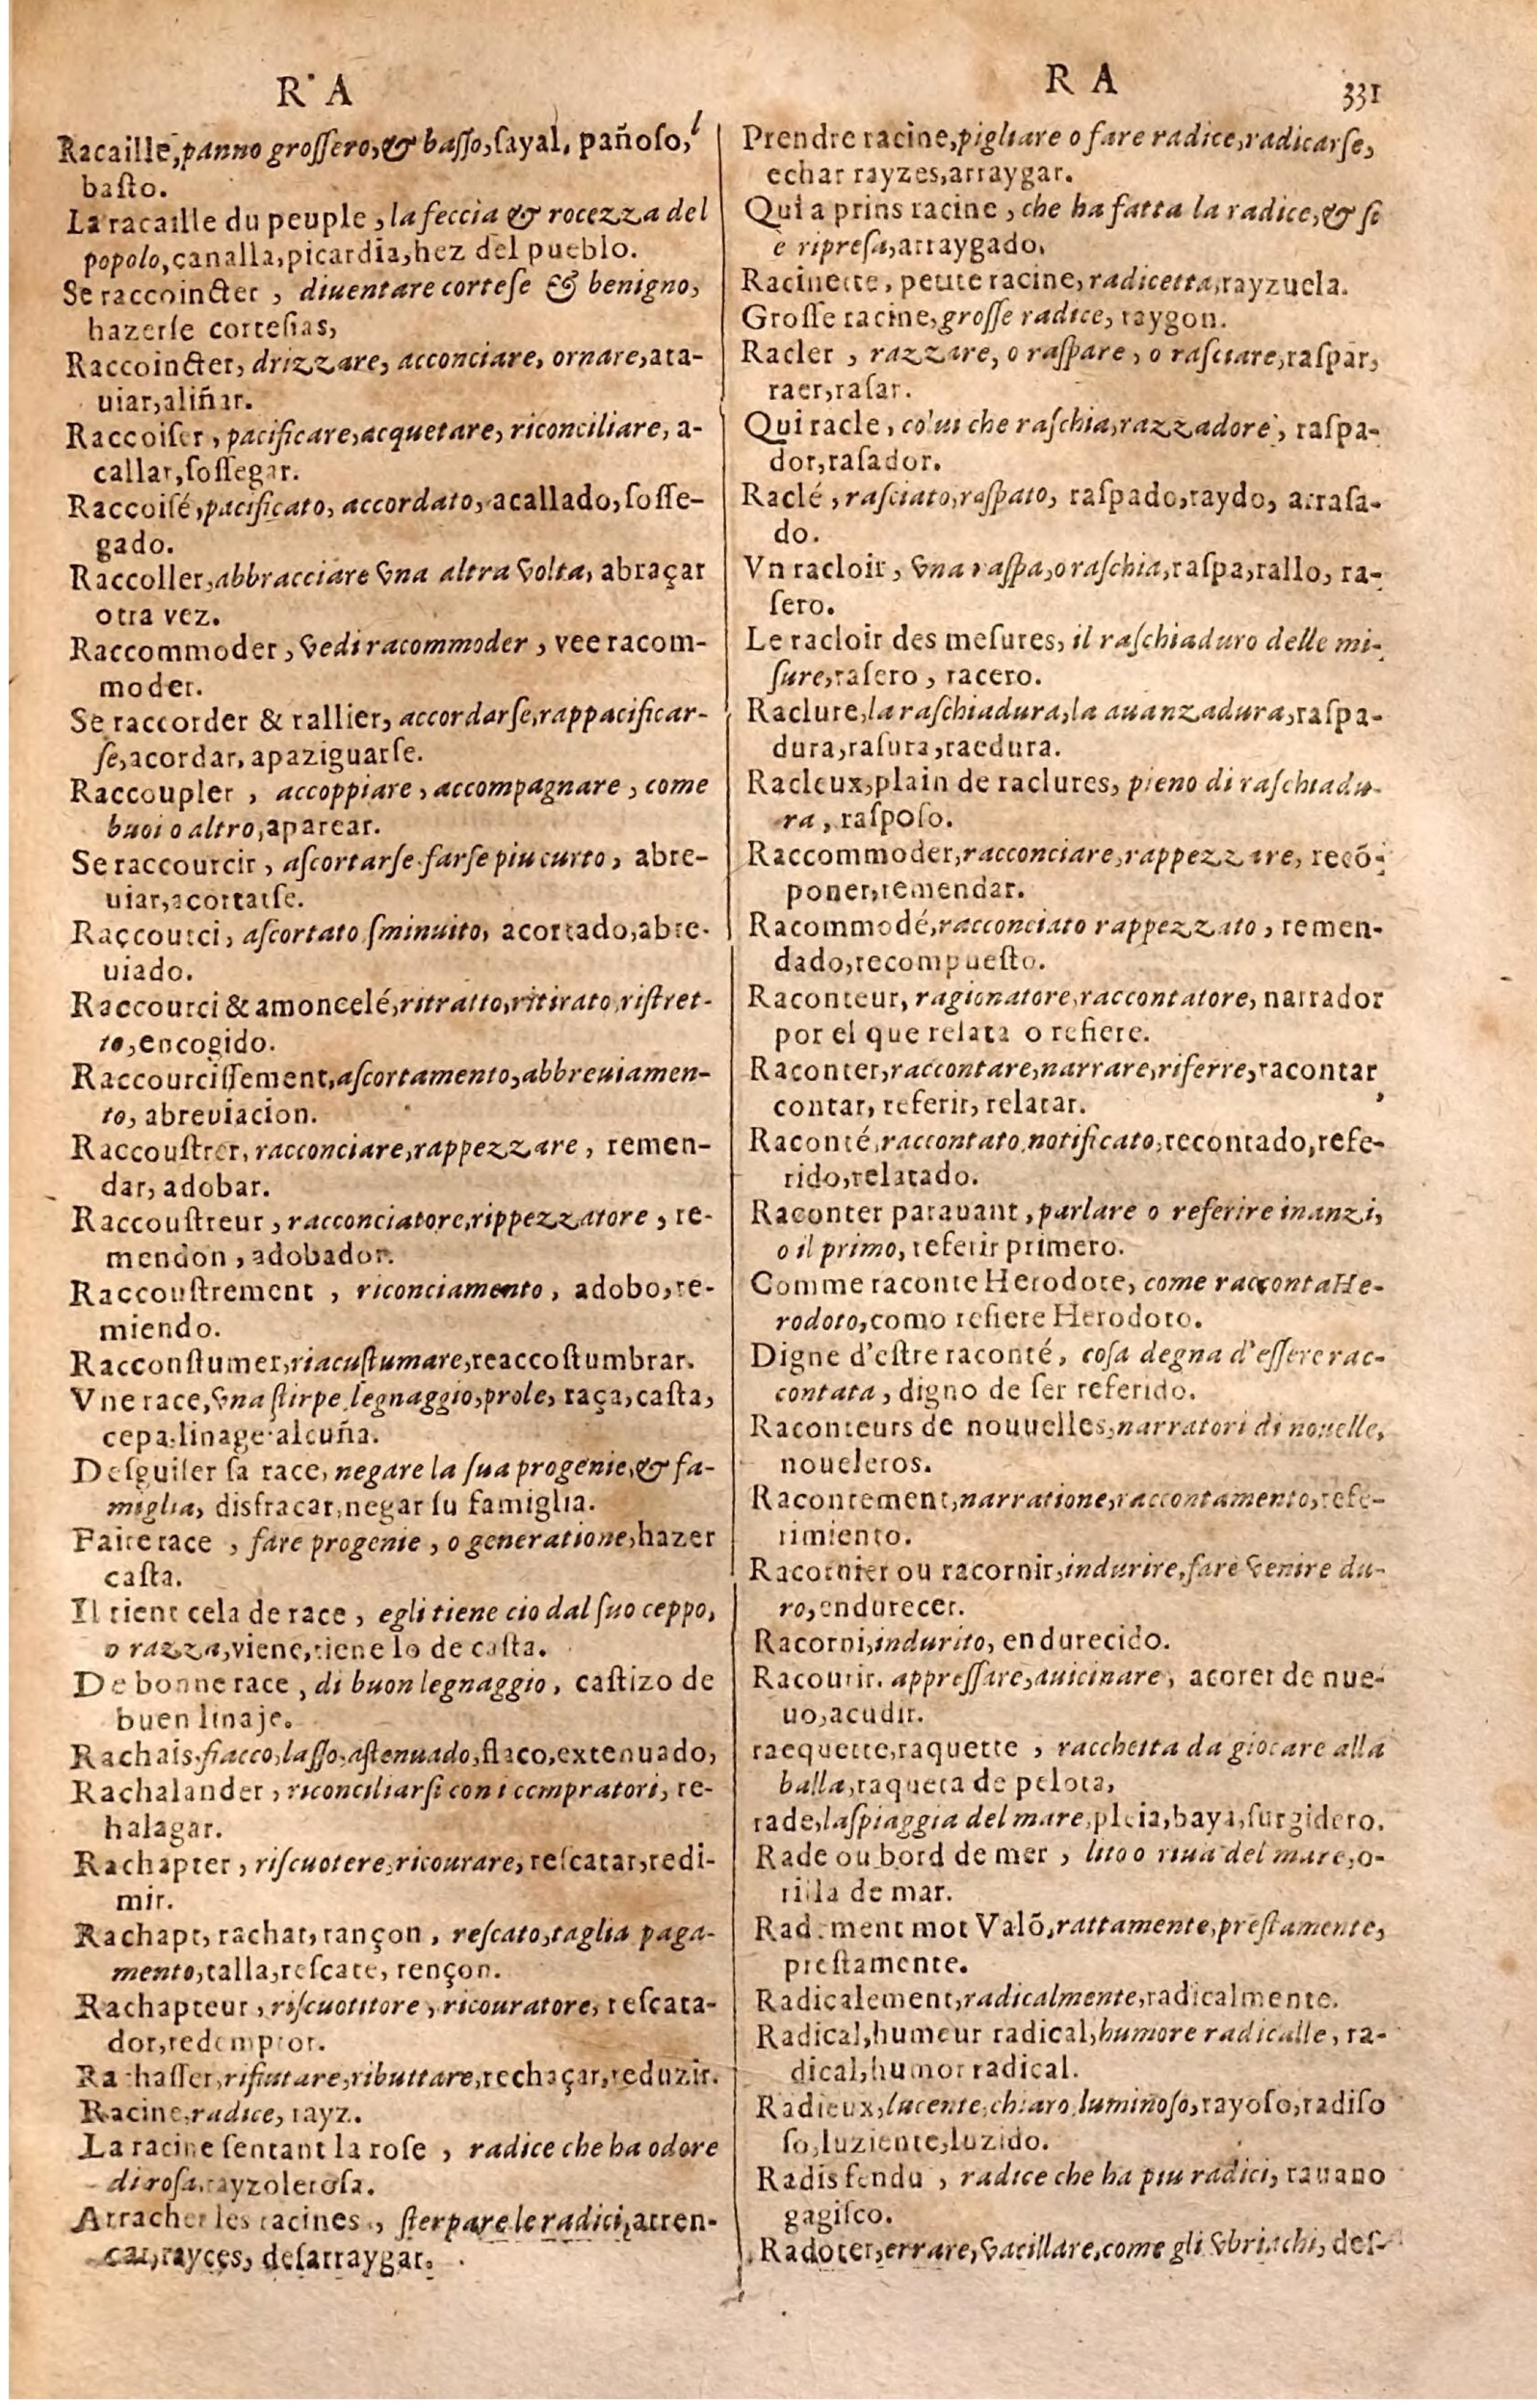 R A
Racaille, panno grossero, & basso, sayal, pañoso,
basto.
La racaille du peuple, la feccia & rocezza del
popolo, canalla, picardia, hez del pueblo.
Se raccoincter, diuentare cortese & benigno,
hazerse cortesias,
Raccoincter, drizzare, acconciare, ornare, ata-
uiar, aliñar.
Raccoiser, pacificare, acquetare, riconciliare, a-
callar, sossegar.
Raccoisé, pacificato, accordato, acallado, sosse-
gado.
Raccoller, abbracciare vna altra volta, abraçar
otra vez.
Raccommoder, vedi racommoder, vee racom-
moder.
Se raccorder & rallier, accordarse, rappacificar-
se, acordar, apaziguarse.
Raccoupler, accoppiare, accompagnare, come
buoi o altro, aparear.
Se raccourcir, ascortarse farse piu curto, abre-
uiar, acortarse.
Raccourci, ascortato sminuito, acortado, abre-
uiado.
Raccourci & amoncelé, ritratto, ritirato, ristret-
to, encogido.
Raccourcissement, ascortamento, abbreuiamen-
to, abreuiacion.
Raccoustrer, racconciare, rappezzare, remen-
dar, adobar.
Raccoustreur, racconciatore, rippezzatore, re-
mendon, adobador.
Raccoustrement, riconciamento, adobo, re-
miendo.
Racconstumer, riacustumare, reaccostumbrar.
Vne race, vna stirpe, legnaggio, prole, raça, casta,
cepa, linage alcuña.
Desguiser sa race, negare la sua progenie, & fa-
miglia, disfracar, negar su famiglia.
Faire race, fare progenie, o generatione, hazer
casta.
Il tient cela de race, egli tiene cio dal suo ceppo,
o razza, viene, tiene lo de casta.
De bonne race, di buon legnaggio, castizo de
buen linaje.
Rachais, fiacco, lasso, astenuado, flaco, extenuado,
Rachalander, riconciliarsi con i compratori, re-
halagar.
Rachapter, riscuotere, ricourare, rescatar, redi-
mir.
Rachapt, rachat, rançon, rescato, taglia paga-
mento, talla, rescate, rençon.
Rachapteur, riscuotitore, ricouratore, rescata-
dor, redemptor.
Rachasser, rifiutare, ributtare, rechaçar, reduzir.
Racine, radice, rayz.
La racine sentant la rose, radice che ha odore
di rosa, rayzolerosa.
Arracher les racines, sterpare le radici, arren-
car, rayces, desarraygar.
R A 331
Prendre racine, pigliare o fare radice, radicarse,
echar rayzes, arraygar.
Qui a prins racine, che ha fatta la radice, & si
è ripresa, arraygado.
Racinette, petite racine, radicetta, rayzuela.
Grosse racine, grosse radice, raygon.
Racler, razzare, o raspare, o rasciare, raspar,
raer, rasar.
Qui racle, colui che raschia, razzadore, raspa-
dor, rasador.
Raclé, rasciato, raspato, raspado, raydo, arrasa-
do.
Vn racloir, vna raspa, o raschia, raspa, rallo, ra-
sero.
Le racloir des mesures, il raschiaduro delle mi-
sure, rasero, racero.
Raclure, la raschiadura, la auanzadura, raspa-
dura, rasura, raedura.
Racleux, plain de raclures, pieno di raschiadu-
ra, rasposo.
Raccommoder, racconciare, rappezzare, recõ-
poner, remendar.
Racommodé, racconciato rappezzato, remen-
dado, recompuesto.
Raconteur, ragionatore, raccontatore, narrador
por el que relata o refiere.
Raconter, raccontare, narrare, riferre, racontar
contar, referir, relatar.
Raconté, raccontato, notificato, recontado, refe-
rido, relatado.
Raconter parauant, parlare o referire inanzi,
o il primo, referir primero.
Comme raconte Herodote, come racconta He-
rodoto, como refiere Herodoto.
Digne d'estre raconté, cosa degna d'essere rac-
contata, digno de ser referido.
Raconteurs de nouuelles, narratori di nouelle,
noueleros.
Racontement, narratione, raccontamento, refe-
rimiento.
Racornier ou racornir, indurire, fare venire du-
ro, endurecer.
Racorni, indurito, endurecido.
Racourir. appressare, auicinare, acorer de nue-
uo, acudir.
raequette, raquette, racchetta da giocare alla
balla, raqueta de pelota,
rade, la spiaggia del mare, pleia, baya, surgidero.
Rade ou bord de mer, lito o riua del mare, o-
rilla de mar.
Radement mot Valõ, rattamente, prestamente,
prestamente.
Radicalement, radicalmente, radicalmente.
Radical, humeur radical, humore radicalle, ra-
dical, humor radical.
Radieux, lucente, chiaro, luminoso, rayoso, radiso
so, luziente, luzido.
Radis fendu, radice che ha piu radici, rauano
gagisco.
Radoter, errare, vacillare, come gli vbriachi, des-